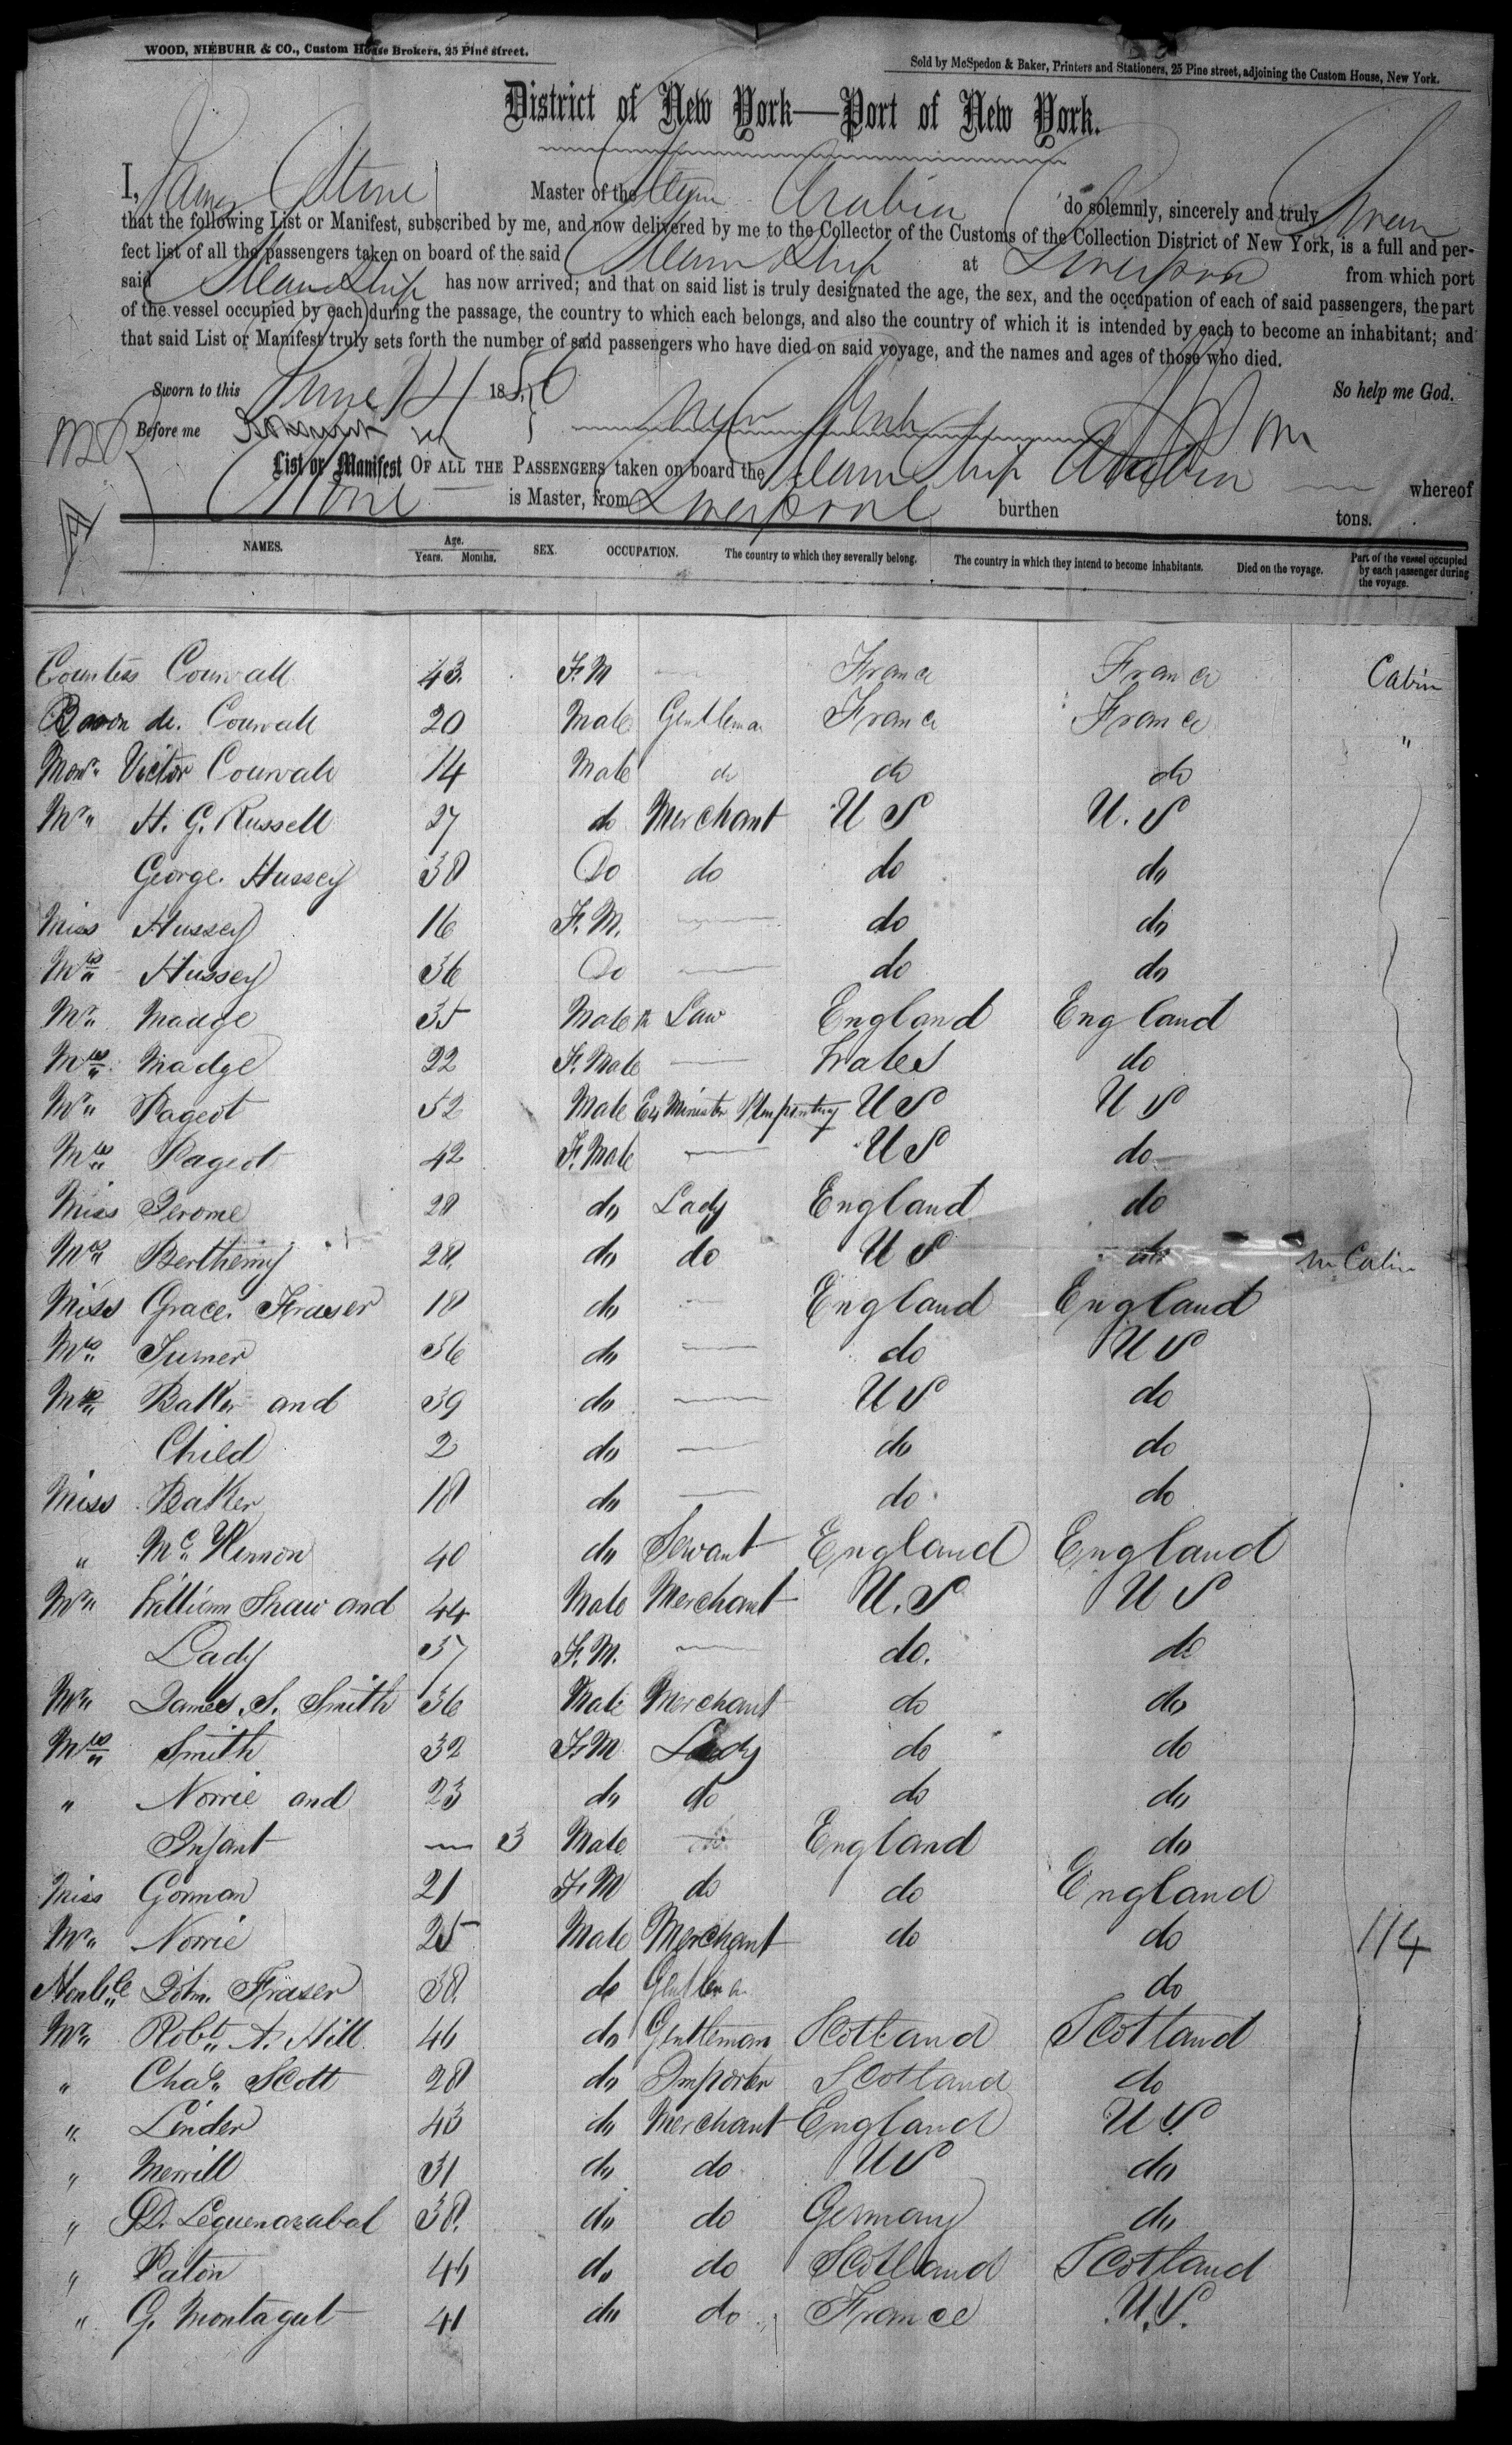 WOOD, NIEBUHR & CO., Custom House Brokers, 25 Pine street.
Sold by McSpedon & Baker, Printers and Stationers, 25 Pine street, adjoining the Custom House, New York.
District of New York—Port of New York.
I, James Stone Master of the Steam Arabia do solemnly, sincerely and truly Swear
that the following List or Manifest, subscribed by me, and now delivered by me to the Collector of the Customs of the Collection District of New York, is a full and per-
fect list of all the passengers taken on board of the said Steam Ship at Liverpool from which port
said Steam Ship has now arrived; and that on said list is truly designated the age, the sex, and the occupation of each of said passengers, the part
of the vessel occupied by each during the passage, the country to which each belongs, and also the country of which it is intended by each to become an inhabitant; and
that said List or Manifest truly sets forth the number of said passengers who have died on said voyage, and the names and ages of those who died.
Sworn to this June 14 1856 So help me God.
Before me
List or Manifest OF ALL THE PASSENGERS taken on board the Steam Ship Arabia whereof
Stone is Master, from Liverpool burthen tons.
NAMES. Age. Years. Months. SEX. OCCUPATION. The country to which they severally belong. The country in which they intend to become inhabitants. Died on the voyage. Part of the vessel occupied by each passenger during the voyage.
Countess Courvall 43 F. M — France France Cabin
Baron de. Courvall 20 Male Gentleman France France "
Mon. Victor Courvall 14 Male do do do
Mr. H. G. Russell 27 do Merchant U S U. S
George. Hussey 38 Do do do do
Miss Hussey 16 F. M. — do do
Mrs Hussey 36 Do — do do
Mr. Madge 35 Male Law England England
Mrs Madge 22 F. Male — Wales do
Mr. Pageot 52 Male Ex Minister U S U S
Mrs Pageot 42 F. Male — U S do
Miss Jerome 28 do Lady England do
Mrs Berthemy 28 do do U S do in Cabin
Miss Grace. Fraser 18 do — England England
Mrs Turner 36 do — do U S
Mrs Baker and 39 do — U S do
Child 2 do — do do
Miss Baker 18 do — do do
" 40 do Servant England England
Mr. William Shaw and 44 Male Merchant U. S U S
Lady 37 F. M. — do. do
Mr. James. S. Smith 36 Male Merchant do do
Mrs Smith 32 F. M Lady do do
" Norrie and 23 do do do do
Infant — 3 Male — England do
Miss Gorman 21 F. M do do England
Mr. Norrie 25 Male Merchant do do 114
Honble John. Fraser 38. do Gentleman do
Mr. Robt. A. Hill 46 do Gentleman Scotland Scotland
" Chas. Scott 28 do Importer Scotland do
" Linder 43 do Merchant England U S.
" Merrill 31 do do U S do
" D. Leguenazabal 38. do do Germany do
" Paton 46 do do Scotland Scotland
" G. Montagut 41 do do France U. S.